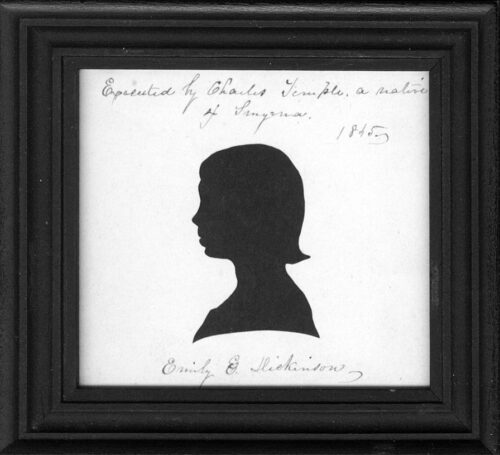 Executed by Charles Temple, a native
of Smyrna.
1845
Emily E. Dickinson